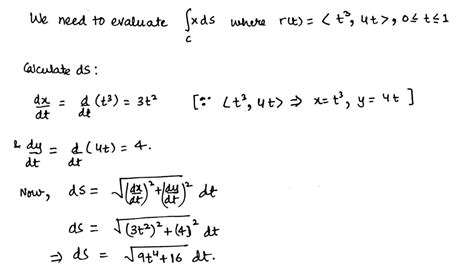 We need to evaluate ∫_C x ds where r(t) = < t³, 4t >, 0 ≤ t ≤ 1
Calculate ds:
dx/dt = d/dt (t³) = 3t² [∵ <t³, 4t> ⇒ x = t³, y = 4t ]
& dy/dt = d/dt (4t) = 4.
Now, ds = √((dx/dt)² + (dy/dt)²) dt
ds = √((3t²)² + (4)²) dt
⇒ ds = √(9t⁴ + 16) dt.